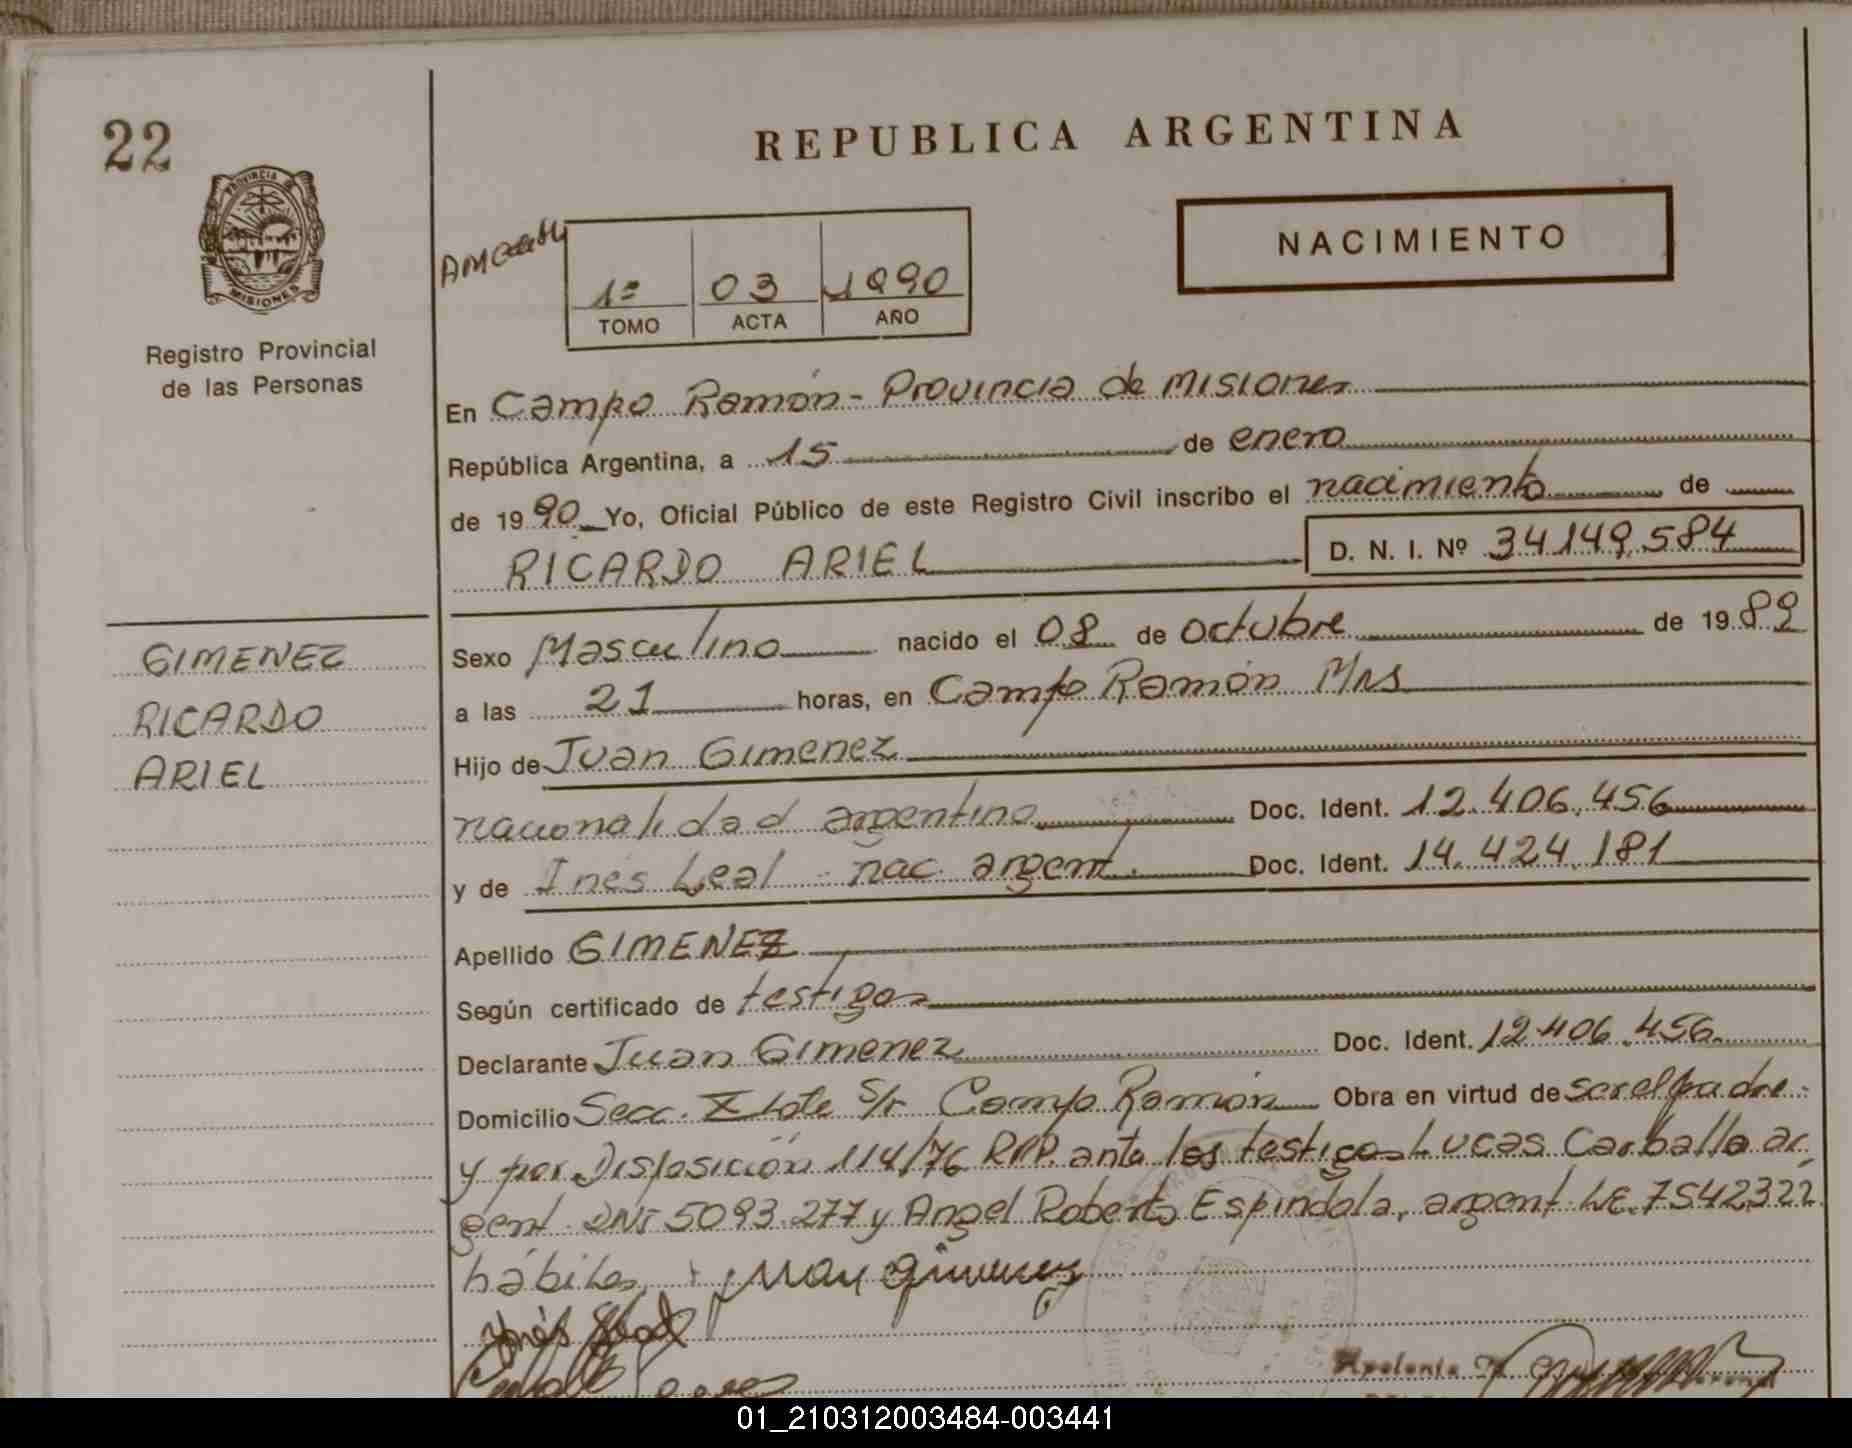 22
REPUBLICA ARGENTINA
PROVINCIA DE
MISIONES
NACIMIENTO
1º 03 1990
TOMO ACTA AÑO
Registro Provincial
de las Personas
En Campo Ramón - Provincia de Misiones
República Argentina, a 15 de enero
de 1990 Yo, Oficial Público de este Registro Civil inscribo el nacimiento de
RICARDO ARIEL D. N. I. Nº 34.149.584
GIMENEZ
RICARDO
ARIEL
Sexo Masculino nacido el 08 de octubre de 1989
a las 21 horas, en Campo Ramón Mns
Hijo de Juan Gimenez
nacionalidad argentino Doc. Ident. 12.406.456
y de Inés Leal - nac. argent. Doc. Ident. 14.424.181
Apellido GIMENEZ
Según certificado de testigos
Declarante Juan Gimenez Doc. Ident. 12.406.456
Domicilio Secc. X Lote s/n Campo Ramón Obra en virtud de ser el padre.-
y por Disposición 114/76 RPP. ante los testigos Lucas Carballo ar
gent. DNI 5093.277 y Angel Roberto Espindola, argent. LE. 7542322
hábiles,
01_210312003484-003441